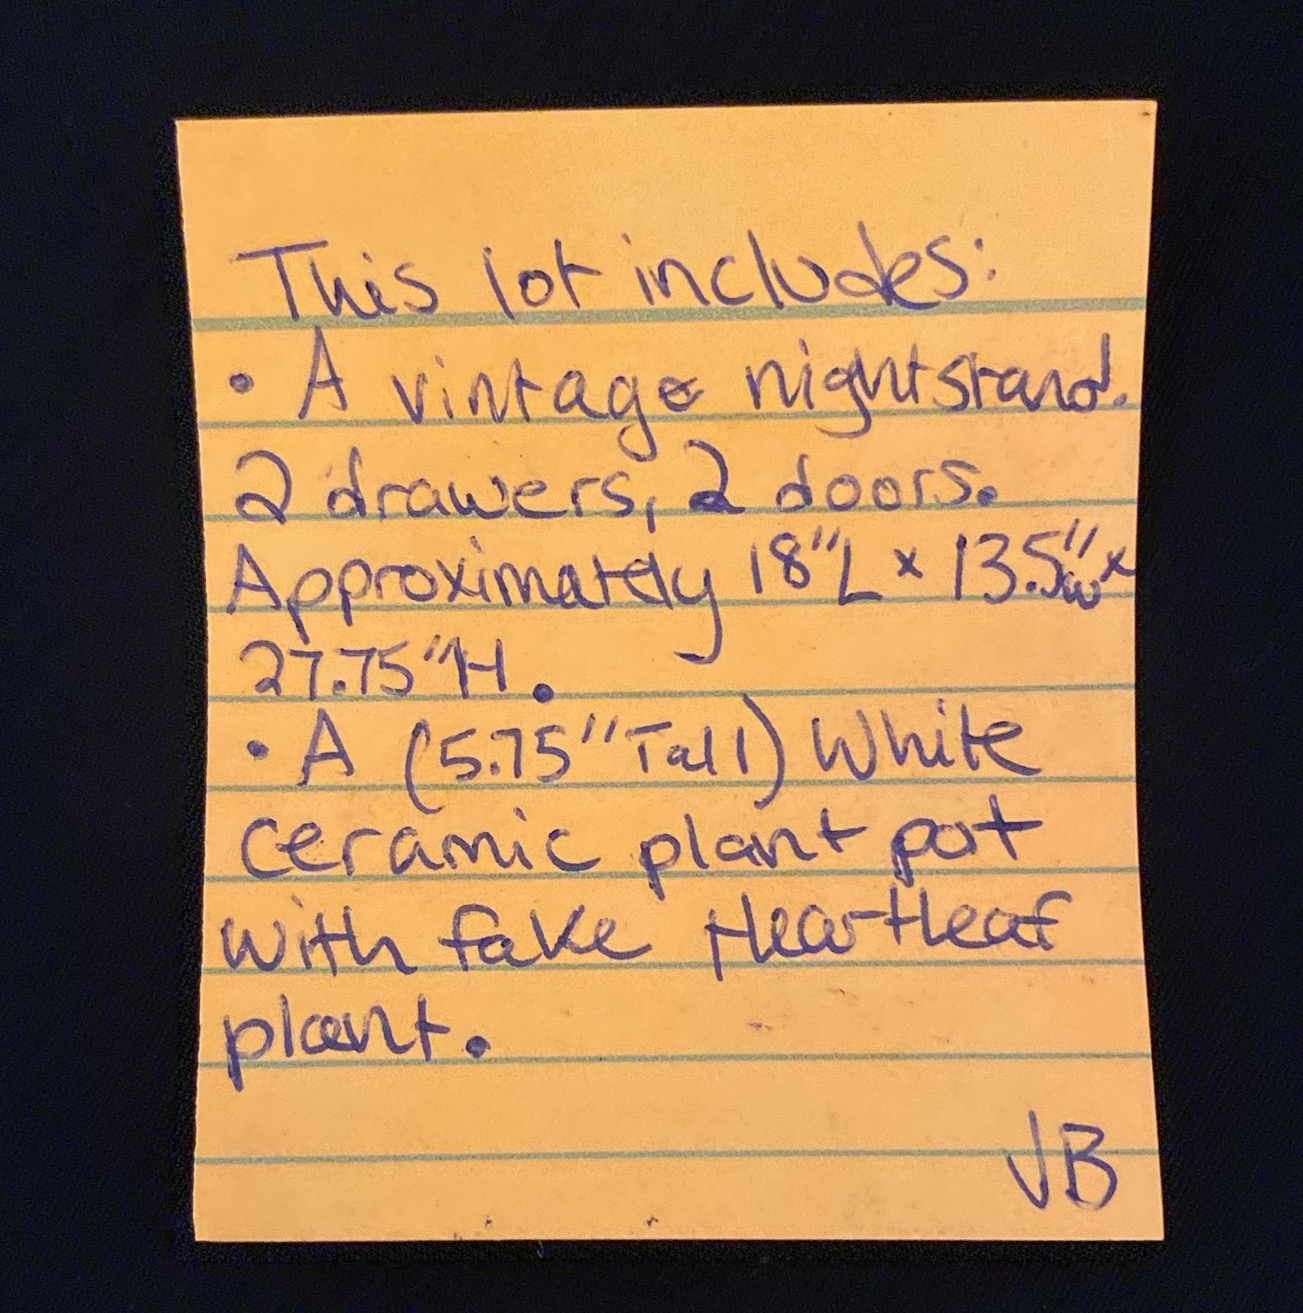 This lot includes:
• A vintage nightstand.
2 drawers, 2 doors.
Approximately 18"L x 13.5"w x
27.75"H.
• A (5.75" Tall) White
ceramic plant pot
with fake Heartleaf
plant.
JB